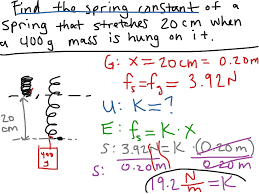 Find the spring constant of a
Spring that stretches 20cm when
a 400g mass is hung on it.
G: x = 20cm = 0.20m
fs = fg = 3.92N
U: K = ?
E: fs = K · x
S: 3.92N = K · (0.20m)
S: 0.20m 0.20m
19.2 N/m = K
20
cm
400
g